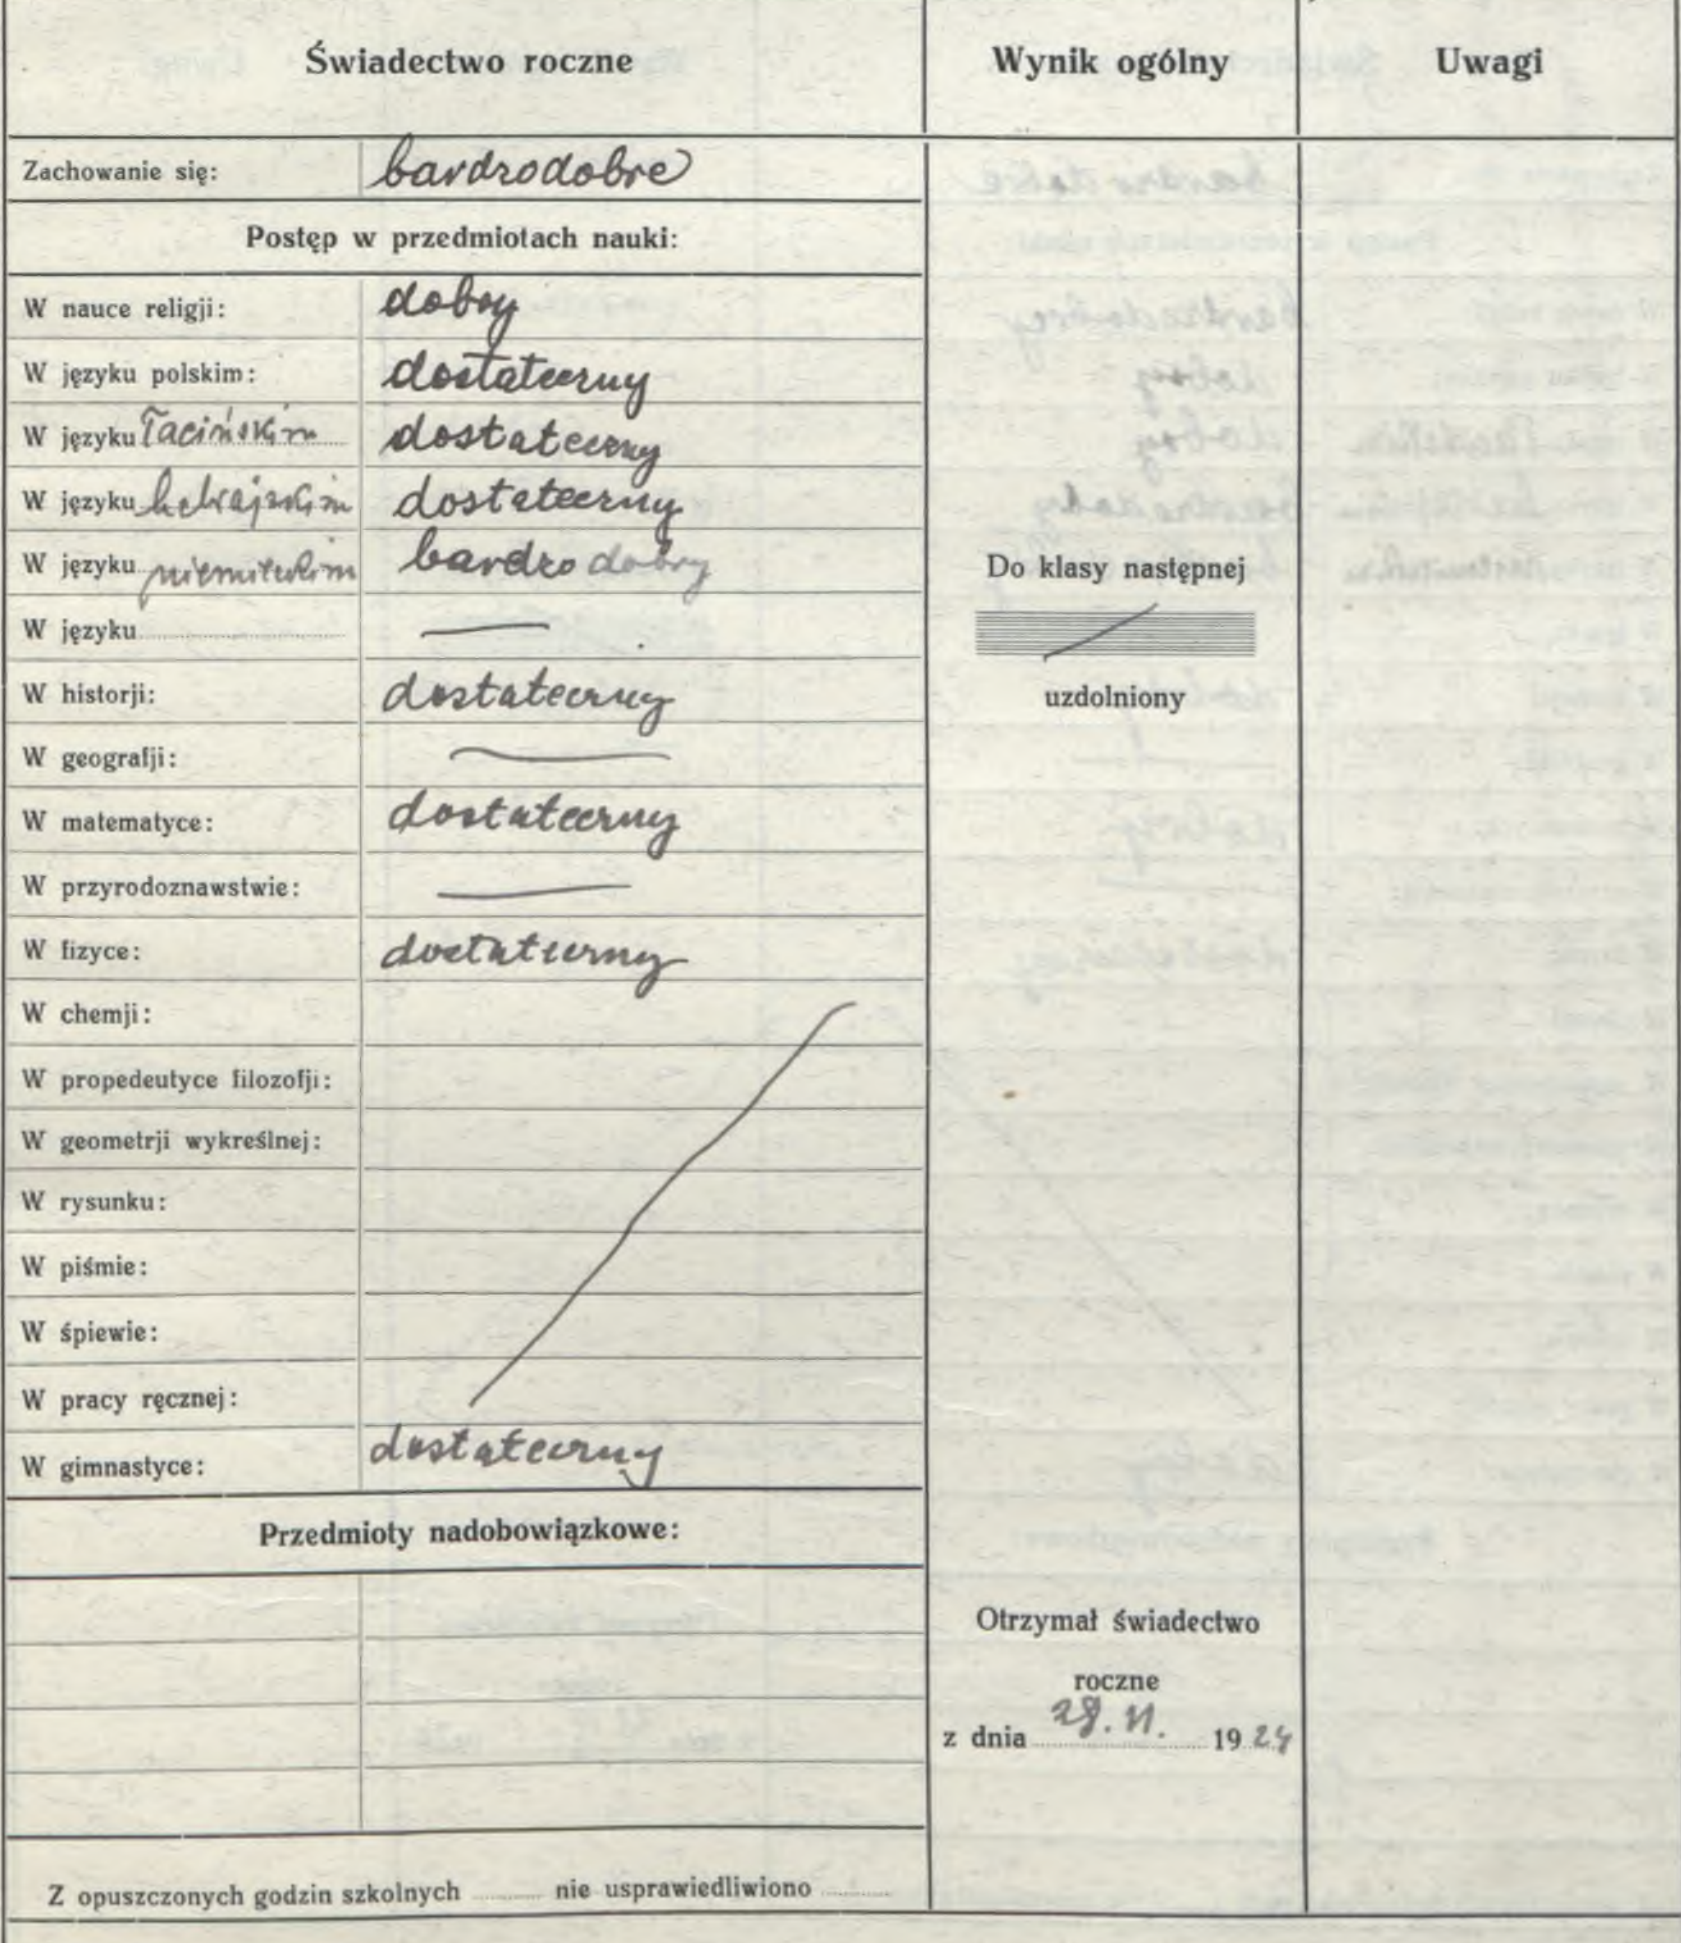 Świadectwo roczne Wynik ogólny Uwagi
Zachowanie się: bardzo dobre
Postęp w przedmiotach nauki:
W nauce religji: dobry
W języku polskim: dostateczny
W języku łacińskim dostateczny
W języku hebrajskim dostateczny
W języku niemieckim bardzo dobry
W języku
W historji: dostateczny
W geografji:
W matematyce: dostateczny
W przyrodoznawstwie:
W fizyce: dostateczny
W chemji:
W propedeutyce filozofji:
W geometrji wykreślnej:
W rysunku:
W piśmie:
W śpiewie:
W pracy ręcznej:
W gimnastyce: dostateczny
Przedmioty nadobowiązkowe:
Z opuszczonych godzin szkolnych nie usprawiedliwiono
Do klasy następnej
uzdolniony
Otrzymał świadectwo
roczne
z dnia 28. 1924